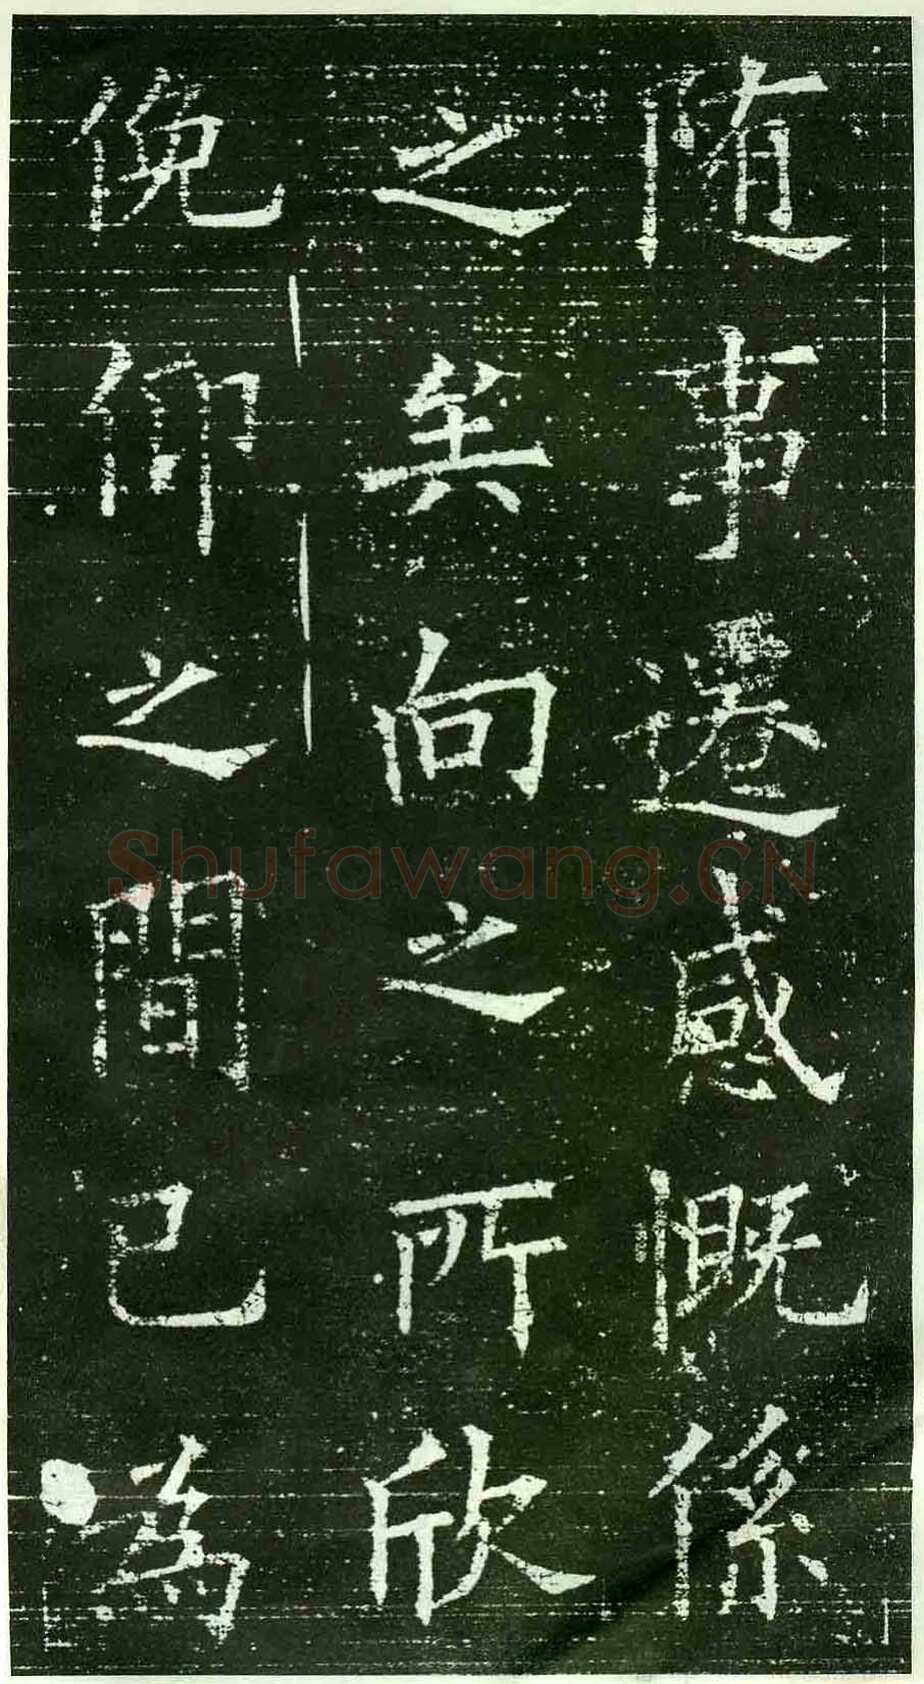 随事遷感慨係
之矣向之所欣
俛仰之間已為
Shufawang.CN